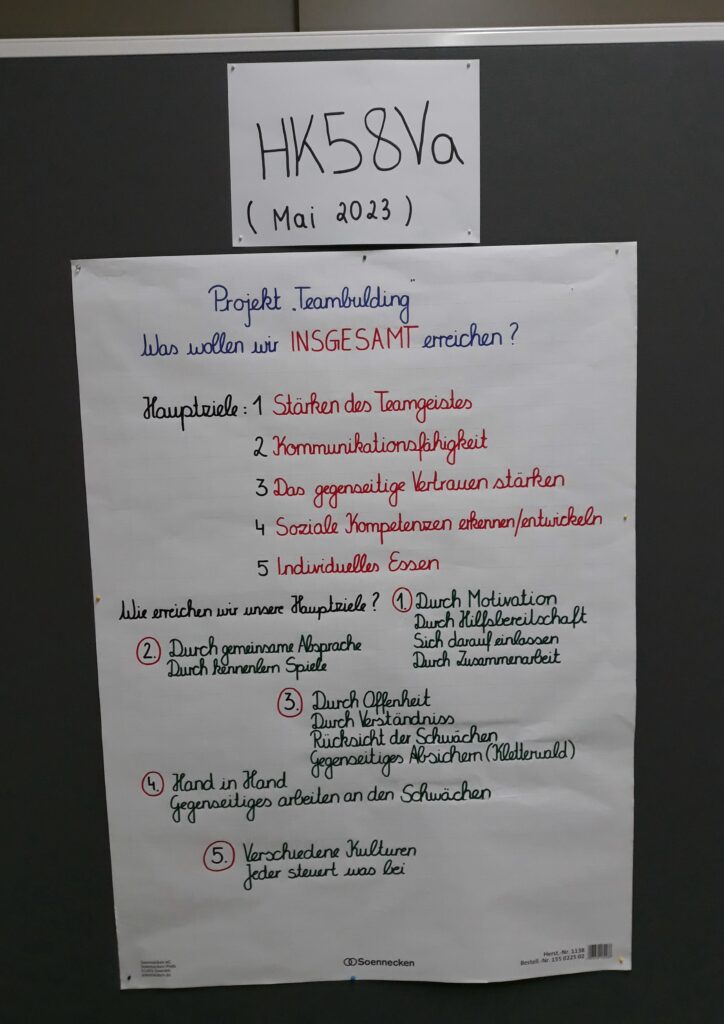 HK58Va
(Mai 2023)
Projekt „Teambulding"
Was wollen wir INSGESAMT erreichen?
Hauptziele: 1 Stärken des Teamgeistes
2 Kommunikationsfähigkeit
3 Das gegenseitige Vertrauen stärken
4 Soziale Kompetenzen erkennen/entwickeln
5 Individuelles Essen
Wie erreichen wir unsere Hauptziele?
1. Durch Motivation
Durch Hilfsbereitschaft
Sich darauf einlassen
Durch Zusammenarbeit
2. Durch gemeinsame Absprache
Durch kennenlern Spiele
3. Durch Offenheit
Durch Verständniss
Rücksicht der Schwächen
Gegenseitiges Absichern (Kletterwald)
4. Hand in Hand
Gegenseitiges arbeiten an den Schwächen
5. Verschiedene Kulturen
Jeder steuert was bei
Soennecken eG
Soennecken
Herst.-Nr. 1138
Bestell.-Nr. 155 0225 02